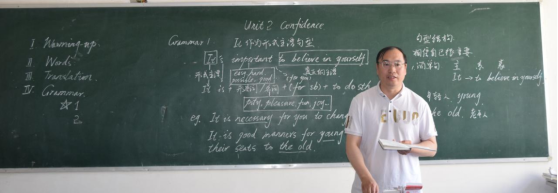 Unit 2 Confidence
I Warming-up.
II Words
III Translation.
IV Grammar
☆1
2
Grammar 1
It 作为形式主语句型
It is important to believe in yourself
形式主语
easy, hard,
possible, good
(for you)
真正的主语
It is + 形容词/名词 + (for sb) + to do sth
pity, pleasure, fun, joy...
eg. It is necessary for you to change
It is good manners for young
their seats to the old.
句型结构
相信自己很重要
主 系 表
It → to believe in yourself
young
the old. 老年人